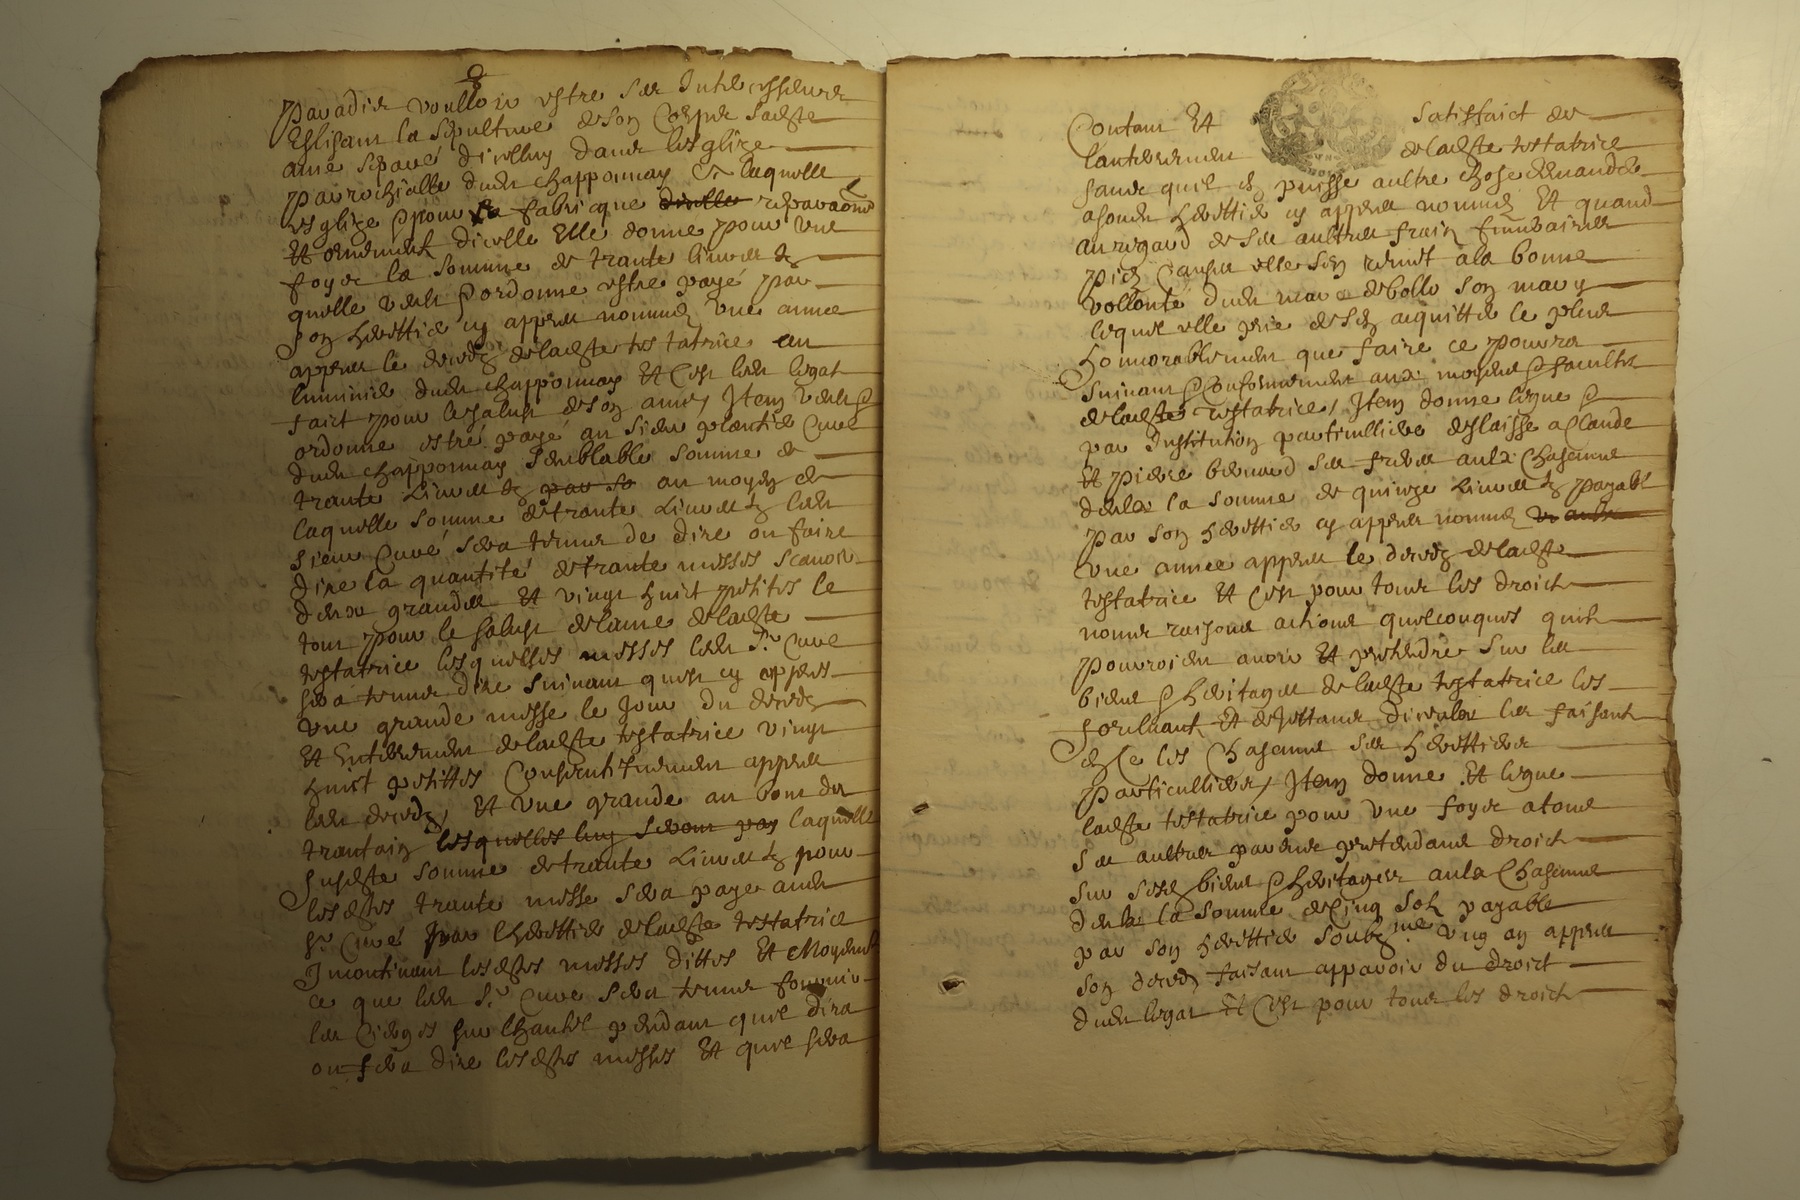 paradis voulloir estre ses Intercesseurs
Eslisant la sepulture de son Corps ladite
ame separé dicelluy dans lesglize
parrochialle dudit chapponnay a laquelle
esglize & pour sa fabricque dicelle reparaons
et ornements dicelle Elle donne pour une
foys la somme de trante livres tz
quelle veult & ordonne estre payé par
son heritier cy appres nommez une année
appres le deceds de ladite testatrice au
luminier dudit chapponnay Et Cest ledit legat
faict pour le salut de son ame, Item veult &
ordonne estre payé au sieur Curé
dudit chapponnay semblable somme de
trante Livres tz par so au moyen de
laquelle somme de trante Livres tz ledit
sieur Curé sera tenus de dire ou faire
dire la quantité de trante messes scavoir
deux grandes Et vingt huict petites le
tout pour le salut de lame de ladite
testatrice lesquelles messes ledit Sr Curé
sera tenus dire suivant quest cy appres
une grande messe le Jour du deceds
Et Enterrement de ladite testatrice vingt
huict petittes Consecutivement appres
ledit deceds, Et une grande au bout du
trantain lesquelles luy seront pay laquelle
susdite somme de trante Livres tz pour
lesdites trante messe sera paye audit
Sr Curé par lheritier de ladite testatrice
Incontinant lesdites messes dittes Et Moyennt
ce que ledit Sr Curé sera tenus fournir
les Cierges sur lhautel pendant quil dira
ou fera dire lesdites messes Et quil sera
Contant Et satisfaict de
lanterrement de ladite testatrice
sans quil en puisse aultre chose demander
a sondit heritier cy appres nommez Et quand
au regard de ses aultres frais funeraires
pies Causes elle sen remet a la bonne
vollonté dudit marc debolo son mary
lequel elle prie de sen acquitter le plus
honnorablement que faire ce pourra
suivant & Conformement aux moyens & facultes
de ladite testatrice, Item donne legue &
par Institution particulliere deslaisse a Claude
Et pierre bernard ses freres aulx Chascuns
deulx la somme de quinze Livres tz payable
par son heritier cy appres nommez
une annee appres le deceds de ladite
testatrice Et Cest pour tous les droicts
noms raisons actions quelconques quilz
pourroient avoir Et prethendre sur les
biens & heritages de ladite testatrice les
forcluant Et dejettant diceulx les faisant
en Ce les Chascuns ses heritiers
particulliers, Item donne Et legue
ladite testatrice pour une foys a tous
ses aultres parens prethendans droict
sur sesdz biens & heritages a ung Chascuns
deulx la somme de Cinq solz payable
par son heritier soubzne ung an appres
son deceds faisant apparoir du droict
dudit legat Et Cest pour tous les droicts